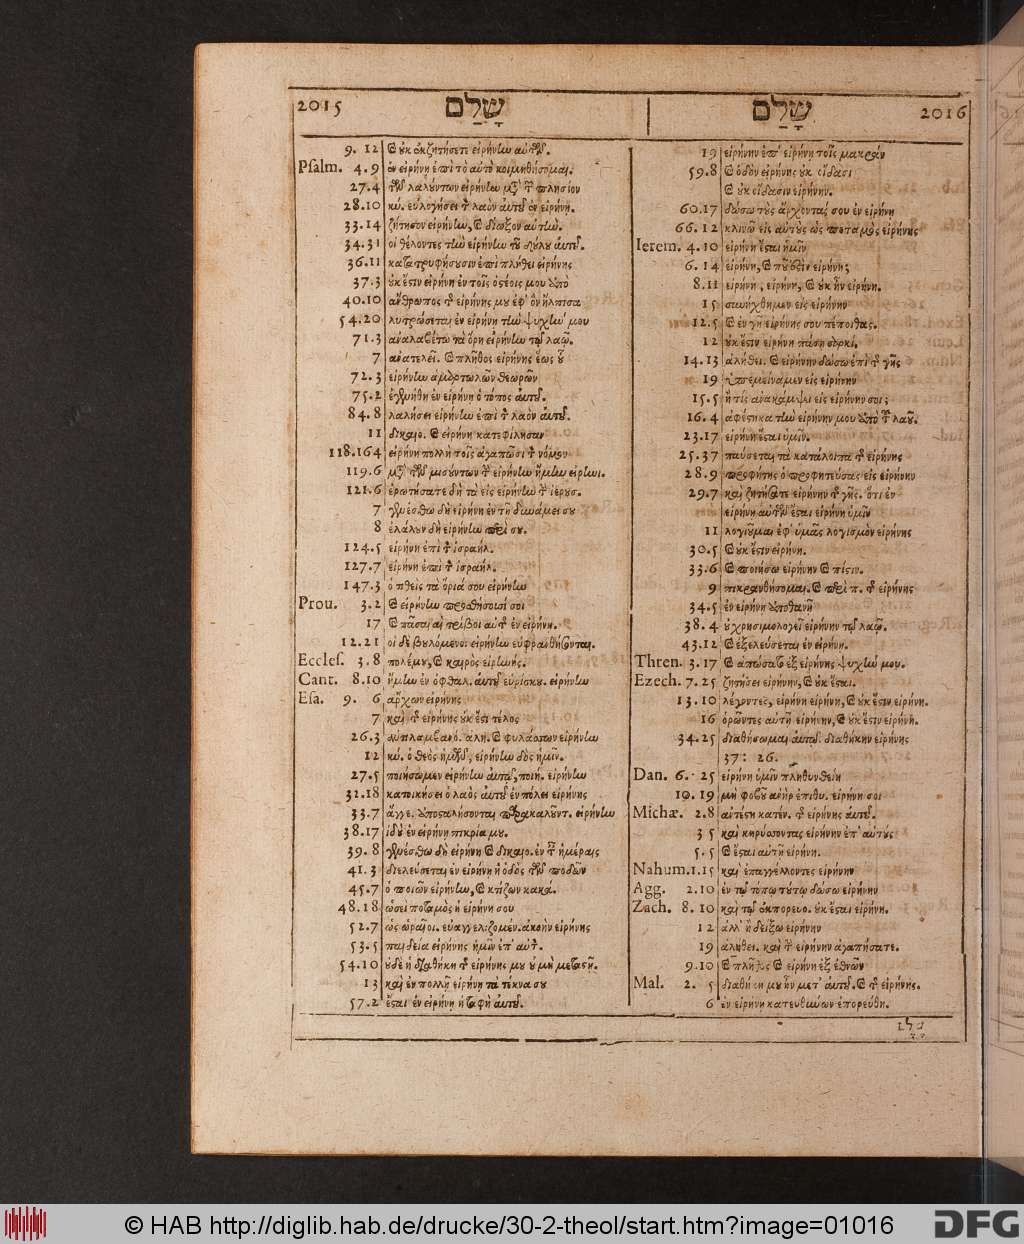 2015 שָׁלַם
9. 12 καὶ οὐκ ἐκζητήσετε εἰρήνην αὐτῶν.
Psalm. 4. 9 ἐν εἰρήνῃ ἐπὶ τὸ αὐτὸ κοιμηθήσομαι.
27.4 τῶν λαλούντων εἰρήνην μετὰ τῶν πλησίον
28.10 κύ. εὐλογήσει τὸν λαὸν αὑτοῦ ἐν εἰρήνῃ.
33.14 ζήτησον εἰρήνην, καὶ δίωξον αὐτήν.
34.31 οἱ θέλοντες τὴν εἰρήνην τοῦ δούλου αὑτοῦ.
36.11 κατατρυφήσουσιν ἐπὶ πλήθει εἰρήνης
37.3 οὐκ ἔστιν εἰρήνη ἐν τοῖς ὀστέοις μου ἀπὸ
40.10 ἄνθρωπος τῆς εἰρήνης μου ἐφ' ὃν ἤλπισα
54.20 λυτρώσεται ἐν εἰρήνῃ τὴν ψυχήν μου
71.3 ἀναλαβέτω τὰ ὄρη εἰρήνην τῷ λαῷ.
7 ἀνατελεῖ. καὶ πλῆθος εἰρήνης ἕως οὗ
72.3 εἰρήνην ἁμαρτωλῶν θεωρῶν
75.2 ἐγενήθη ἐν εἰρήνῃ ὁ τόπος αὑτοῦ.
84.8 λαλήσει εἰρήνην ἐπὶ τὸν λαὸν αὑτοῦ.
11 δικαιο. καὶ εἰρήνη κατεφίλησαν
118.164 εἰρήνη πολλὴ τοῖς ἀγαπῶσι τὸν νόμον
119.6 μετὰ τῶν μισούντων τὴν εἰρήνην ἤμην εἰρηνι.
121.6 ἐρωτήσατε δὴ τὰ εἰς εἰρήνην τὴν ἱερουσ.
7 γενέσθω δὴ εἰρήνη ἐν τῇ δυνάμει σου
8 ἐλάλουν δὴ εἰρήνην περὶ σου.
124.5 εἰρήνη ἐπὶ τὸν ἰσραήλ.
127.7 εἰρήνη ἐπὶ τὸν ἰσραήλ.
147.3 ὁ τιθεὶς τὰ ὅριά σου εἰρήνην
Prou. 3.2 καὶ εἰρήνην προσθήσουσί σοι
17 καὶ πᾶσαι αἱ τρίβοι αὐτῆς ἐν εἰρήνῃ.
12.21 οἱ δὲ βουλόμενοι εἰρήνην εὐφρανθήσονται.
Eccles. 3.8 πολέμου, καὶ καιρὸς εἰρήνης.
Cant. 8.10 ἤμην ἐν ὀφθαλ. αὑτοῦ εὑρίσκου. εἰρήνην
Esa. 9. 6 ἄρχων εἰρήνης
7 καὶ τῆς εἰρήνης οὐκ ἔστι τέλος
26.3 ἀντιλαμβανό. ἀλη. καὶ φυλάσσων εἰρήνην
12 κύ. ὁ θεὸς ἡμῶν, εἰρήνην δὸς ἡμῖν.
27.5 ποιήσωμεν εἰρήνην αὐτῷ, ποιή. εἰρήνην
32.18 κατοικήσει ὁ λαὸς αὑτοῦ ἐν πόλει εἰρήνης
33.7 ἄγγε. ἀποσταλήσονται παρακαλοῦντ. εἰρήνην
38.17 ἰδοὺ ἐν εἰρήνῃ πικρία μου.
39. 8 γενέσθω δὴ εἰρήνη καὶ δικαιο. ἐν ταῖς ἡμέραις
41.3 διελεύσεται ἐν εἰρήνῃ ἡ ὁδὸς τῶν ποδῶν
45.7 ὁ ποιῶν εἰρήνην, καὶ κτίζων κακά.
48.18 ὡσεὶ ποταμὸς ἡ εἰρήνη σου
52.7 ὡς ὡραῖοι. εὐαγγελιζομέν. ἀκοὴν εἰρήνης
53.5 παιδεία εἰρήνης ἡμῶν ἐπ' αὐτ.
54.10 οὐδὲ ἡ διαθήκη τῆς εἰρήνης μου οὐ μὴ μεταστῇ.
13 καὶ ἐν πολλῇ εἰρήνῃ τὰ τέκνα σου
57.2 ἔσται ἐν εἰρήνῃ ἡ ταφὴ αὑτοῦ.
שָׁלַם 2016
19 εἰρήνην ἐπ' εἰρήνῃ τοῖς μακρὰν
59.8 καὶ ὁδὸν εἰρήνης οὐκ οἴδασι
καὶ οὐκ οἴδασιν εἰρήνην.
60.17 δώσω τοὺς ἄρχοντάς σου ἐν εἰρήνῃ
66.12 κλινῶ εἰς αὐτοὺς ὡς ποταμὸς εἰρήνης
Ierem. 4.10 εἰρήνη ἔσται ἡμῖν
6.14 εἰρήνη, καὶ ποῦ ἐστὶν εἰρήνη;
8.11 εἰρήνη, εἰρήνη, καὶ οὐκ ἦν εἰρήνη.
15 συνήχθημεν εἰς εἰρήνην
12.5 καὶ ἐν γῇ εἰρήνης σου πέποιθας.
12 οὐκ ἔστιν εἰρήνη πάσῃ σαρκί.
14.13 ἀλήθει. καὶ εἰρήνην δώσω ἐπὶ τῆς γῆς
19 ὑπεμείναμεν εἰς εἰρήνην
15.5 ἢ τίς ἀνακάμψει εἰς εἰρήνην σοι;
16.4 ἀφέστηκα τὴν εἰρήνην μου ἀπὸ τοῦ λαοῦ.
23.17 εἰρήνη ἔσται ὑμῖν.
25.37 παύσεται τὰ κατάλοιπα τῆς εἰρήνης
28.9 προφήτης ὁ προφητεύσας εἰς εἰρήνην
29.7 καὶ ζητήσατε εἰρήνην τῆς γῆς. ὅτι ἐν
εἰρήνῃ αὐτῶν ἔσται εἰρήνη ὑμῖν
11 λογιοῦμαι ἐφ' ὑμᾶς λογισμὸν εἰρήνης
30.5 καὶ οὐκ ἔστιν εἰρήνη.
33.6 καὶ ποιήσω εἰρήνην καὶ πίστιν.
9 πικρανθήσομαι. καὶ περὶ π. τῆς εἰρήνης
34.5 ἐν εἰρήνῃ ἀποθανῇ
38.4 οὐ χρησιμολογεῖ εἰρήνην τῷ λαῷ.
43.12 καὶ ἐξελεύσεται ἐν εἰρήνῃ.
Thren. 3.17 καὶ ἀπώσατο ἐξ εἰρήνης ψυχήν μου.
Ezech. 7.25 ζητήσει εἰρήνην, καὶ οὐκ ἔσται.
13.10 λέγοντες, εἰρήνη εἰρήνη, καὶ οὐκ ἔστιν εἰρήνη.
16 ὁρῶντες αὐτῇ εἰρήνην, καὶ οὐκ ἔστιν εἰρήνη.
34.25 διαθήσωμαι αὐτῷ. διαθήκην εἰρήνης
37: 26.
Dan. 6. 25 εἰρήνη ὑμῖν πληθυνθείη
10.19 μὴ φοβοῦ ἀνὴρ ἐπιθυ. εἰρήνη σοι
Michæ. 2.8 ἀντέστη κατέν. τῆς εἰρήνης αὑτοῦ.
3 5 καὶ κηρύσσοντας εἰρήνην ἐπ' αὐτοὺς
5.5 καὶ ἔσται αὐτῇ εἰρήνη.
Nahum. 1.15 καὶ ἐπαγγέλλοντες εἰρήνην
Agg. 2.10 ἐν τῷ τόπῳ τούτῳ δώσω εἰρήνην
Zach. 8.10 καὶ τῷ ἐκπορευο. οὐκ ἔσται εἰρήνη.
12 ἀλλ' ἢ δείξω εἰρήνην
19 ἀλήθει. καὶ τὴν εἰρήνην ἀγαπήσατε.
9.10 καὶ πλῆθος καὶ εἰρήνη ἐξ ἐθνῶν
Mal. 2. 5. διαθήκη μου ἦν μετ' αὐτοῦ. καὶ τῆς εἰρήνης.
6 ἐν εἰρήνῃ κατευθύνων ἐπορεύθη.
© HAB http://diglib.hab.de/drucke/30-2-theol/start.htm?image=01016
DFG